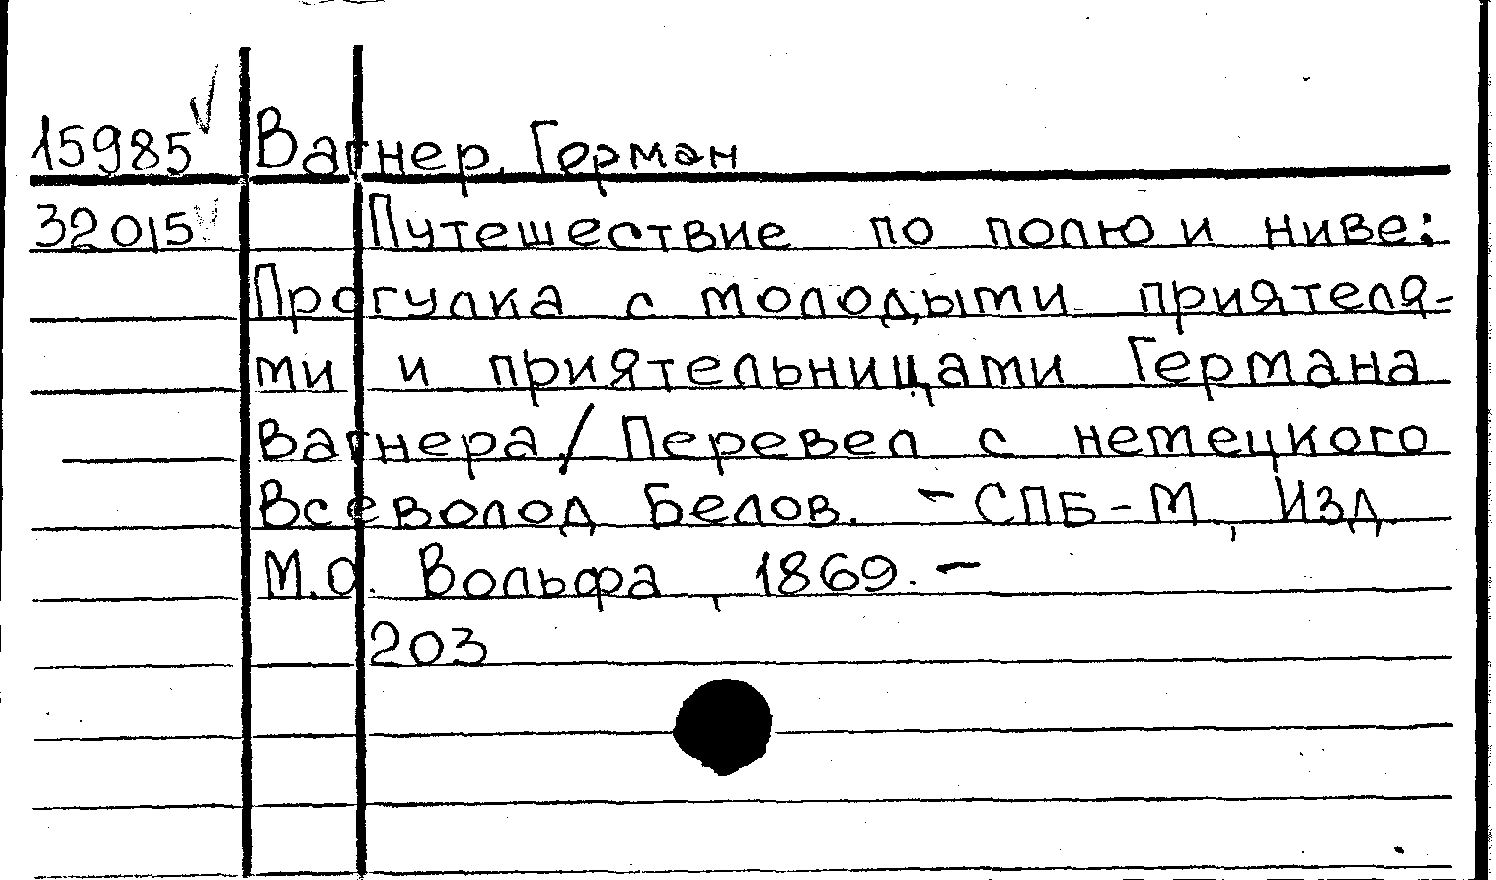 15985 Вагнер, Герман
32015 Путешествие по полю и ниве:
Прогулка с молодыми приятеля-
ми и приятельницами Германа
Вагнера / Перевел с немецкого
Всеволод Белов. - СПБ-М, Изд.
М.О. Вольфа, 1869. -
203